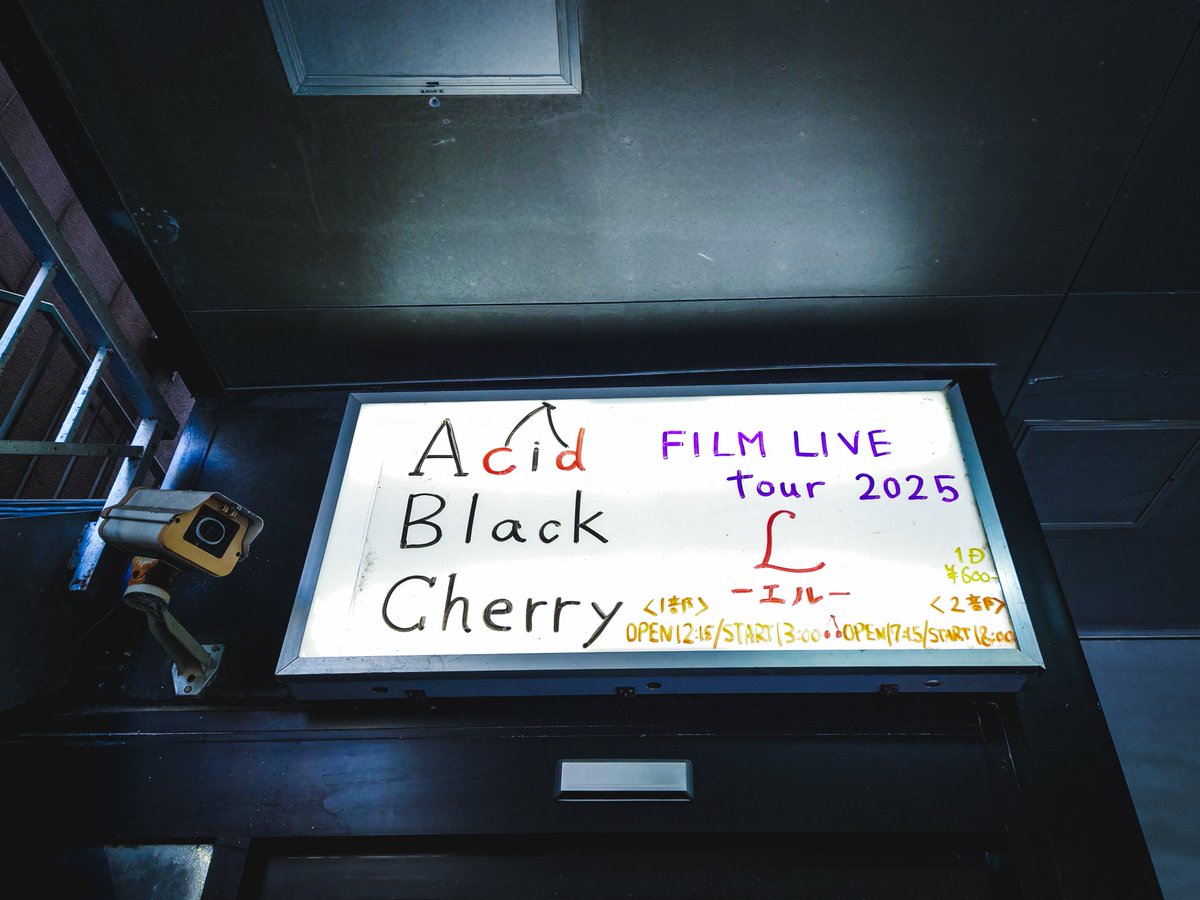 Acid
Black
Cherry
FILM LIVE
tour 2025
L
ーエルー
1D
¥600-
<1部> <2部>
OPEN12:15/START13:00 OPEN17:15/START18:00